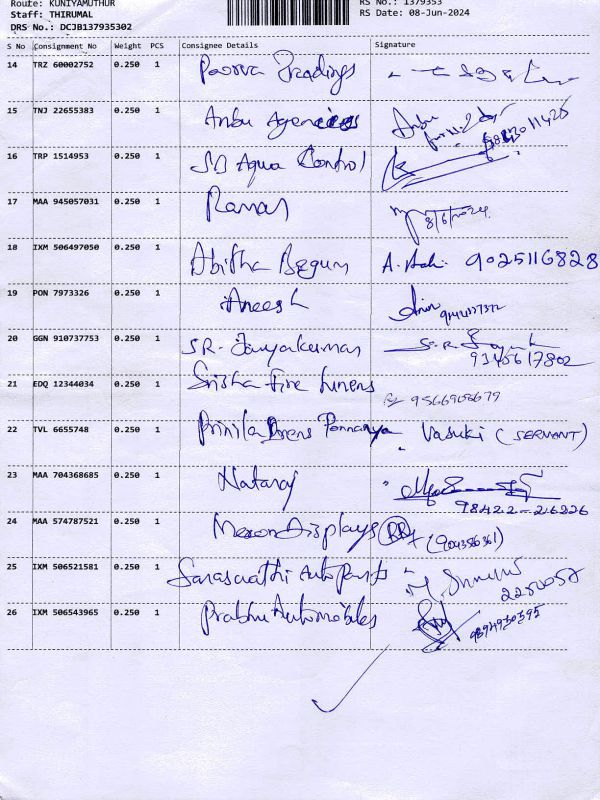 Route: KUNIYAMUTHUR
RS No.: 1379353
Staff: THIRUMAL
RS Date: 08-Jun-2024
DRS No.: DCJB137935302
S No Consignment No Weight PCS Consignee Details Signature
14 TRZ 60002752 0.250 1 Poorva Tradings
15 TNJ 22655383 0.250 1 Anbu Agencies Anbu
16 TRP 1514953 0.250 1 SD Aqua Control
17 MAA 945057031 0.250 1 Raman 8/6/2024
18 IXM 506497050 0.250 1 Abitha Begum A. 9025116828
19 PON 7973326 0.250 1 Aneesh
20 GGN 910737753 0.250 1 SR. Jayakumar S.R.
9345617802
21 EDQ 12344034 0.250 1 Srisha Fire Liners 9566908679
22 TVL 6655748 0.250 1 Vasuki (SERVANT)
23 MAA 704368685 0.250 1 Nataraj
98422-26226
24 MAA 574787521 0.250 1 Displays
25 IXM 506521581 0.250 1 Saraswathi Auto Parts
26 IXM 506543965 0.250 1 Prabhu Automobiles 9894930395